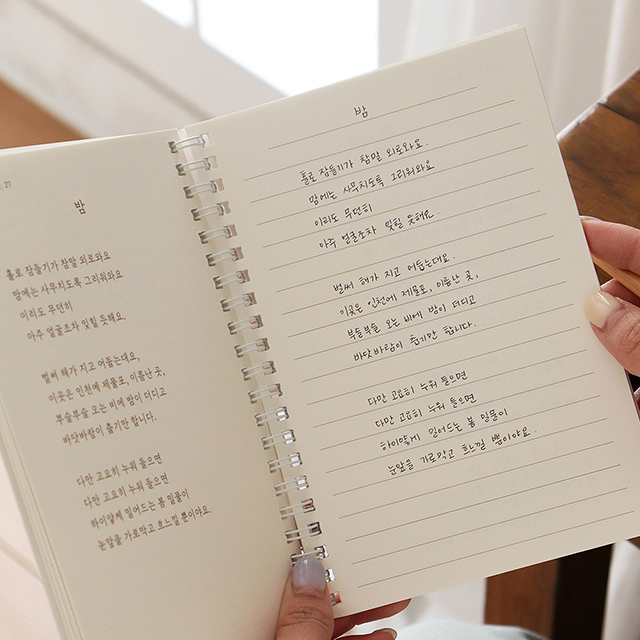 .27
밤
홀로 잠들기가 참말 외로와요
맘에는 사무치도록 그리워와요
이리도 무던히
아주 얼굴조차 잊힐 듯해요.
벌써 해가 지고 어둡는데요,
이곳은 인천에 제물포, 이름난 곳,
부슬부슬 오는 비에 밤이 더디고
바닷바람이 춥기만 합니다.
다만 고요히 누워 들으면
다만 고요히 누워 들으면
하이얗게 밀어드는 봄 밀물이
눈앞을 가로막고 흐느낄 뿐이야요.
밤
홀로 잠들기가 참말 외로와요.
맘에는 사무치도록 그리워와요
이리도 무던히
아주 얼굴조차 잊힐 듯해요.
벌써 해가 지고 어둡는데요.
이곳은 인천에 제물포, 이름난 곳,
부슬부슬 오는 비에 밤이 더디고
바닷바람이 춥기만 합니다.
다만 고요히 누워 들으면
다만 고요히 누워 들으면
하이얗게 밀어드는 봄 밀물이
눈앞을 가로막고 흐느낄 뿐이야요.